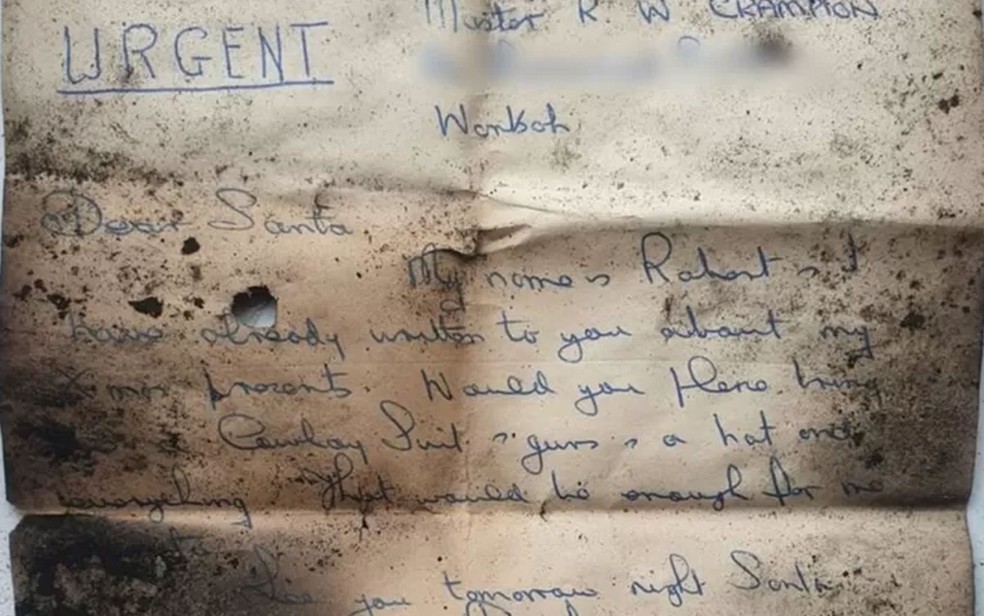 URGENT
Master R W CRAMPION
Worksoh
Dear Santa
My name is Robert & I
have already written to you about my
X mas presents. Would you please bring
a Cowboy Suit & guns & a hat and
everything that would be enough for me
See you tomorrow night Santa